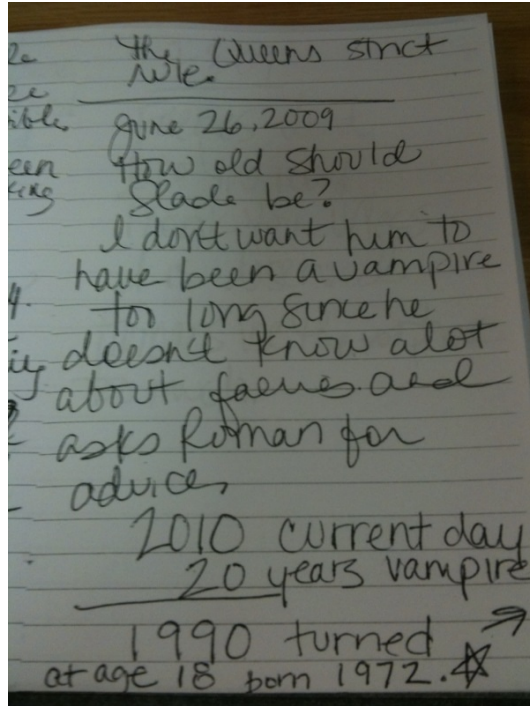 the Queens strict
rule.
June 26, 2009
How old should
Slade be?
I don't want him to
have been a vampire
too long since he
doesn't know alot
about faeries and
asks Roman for
advice,
2010 current day
20 years vampire
1990 turned
at age 18 born 1972.